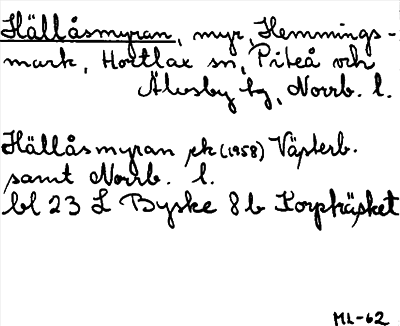 Hällåsmyran, myr, Hemmings-
mark, Hortlax sn, Piteå och
Älvsby tg, Norrb. l.
Hällåsmyran ek (1958) Västerb.
samt Norrb. l.
bl 23 L Byske 8b Korpträsket
ML-62